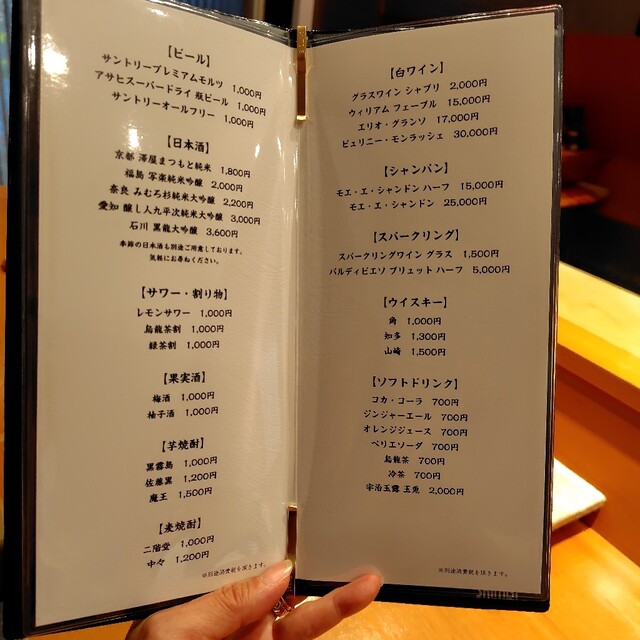 【ビール】
サントリープレミアムモルツ 1,000円
アサヒスーパードライ 瓶ビール 1,000円
サントリーオールフリー 1,000円
【日本酒】
京都 澤屋まつもと純米 1,800円
福島 写楽純米大吟醸 2,000円
奈良 みむろ杉純米大吟醸 2,200円
愛知 醸し人九平次純米大吟醸 3,000円
石川 黒龍大吟醸 3,600円
季節の日本酒も別途ご用意しております。
気軽にお尋ねください。
【サワー・割り物】
レモンサワー 1,000円
烏龍茶割 1,000円
緑茶割 1,000円
【果実酒】
梅酒 1,000円
柚子酒 1,000円
【芋焼酎】
黒霧島 1,000円
佐藤黒 1,200円
魔王 1,500円
【麦焼酎】
二階堂 1,000円
中々 1,200円
※別途消費税を頂きます。
【白ワイン】
グラスワイン シャブリ 2,000円
ウィリアム フェーブル 15,000円
エリオ・グランソ 17,000円
ピュリニー・モンラッシェ 30,000円
【シャンパン】
モエ・エ・シャンドン ハーフ 15,000円
モエ・エ・シャンドン 25,000円
【スパークリング】
スパークリングワイン グラス 1,500円
バルディビエソ ブリュット ハーフ 5,000円
【ウイスキー】
角 1,000円
知多 1,300円
山崎 1,500円
【ソフトドリンク】
コカ・コーラ 700円
ジンジャーエール 700円
オレンジジュース 700円
ペリエソーダ 700円
烏龍茶 700円
冷茶 700円
宇治玉露 玉兎 2,000円
※別途消費税を頂きます。